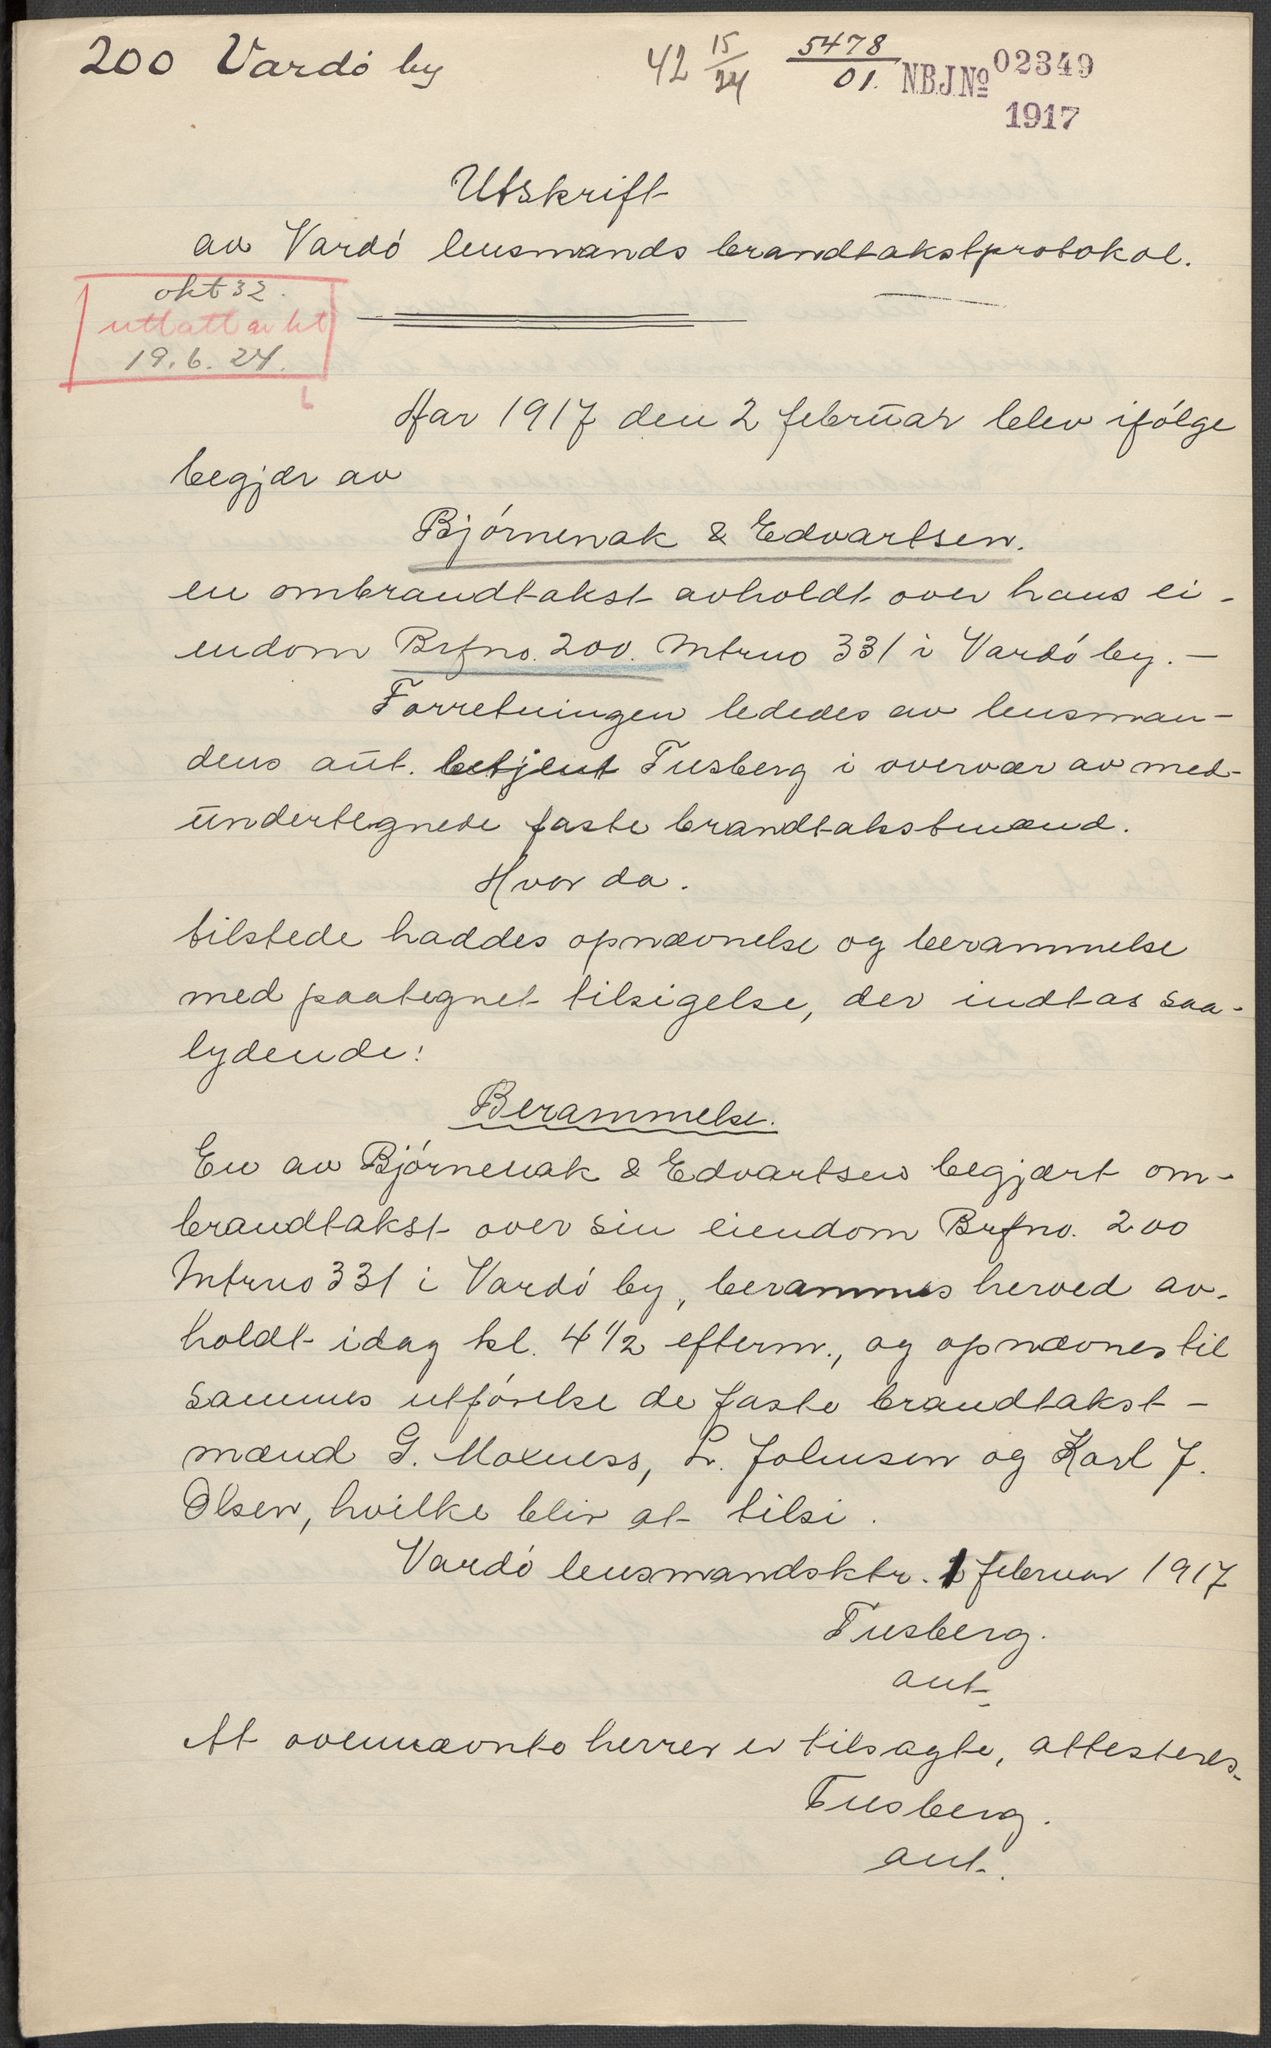 200 Vardö by
42 15/24 5478/01. N.B.J.No 02349
1917
Utskrift
av Vardö lensmands brandtakstprotokol.
okt 32.
uttatt av kt
19.6.24.
Aar 1917 den 2 februar blev ifölge
begjær av
Björnenak & Edvartsen.
en ombrandtakst avholdt over hans ei-
endom Brfno. 200. Mtrno 331 i Vardö by. —
Forretningen lededes av lensman-
dens aut. betjent Tusberg i overvær av med-
undertegnede faste brandtakstmænd.
Hvor da.
tilstede haddes opnævnelse og berammelse
med paategnet tilsigelse, der indtas saa-
lydende:
Berammelse.
En av Björnenak & Edvartsen begjært om-
brandtakst over sin eiendom Brfno. 200
Mtrno 331 i Vardö by, berammes herved av-
holdt idag kl. 4 1/2 efterm., og opnævnes til
sammes utförelse de faste brandtakst-
mænd G. Moxness, L. Johnsen og Karl J.
Olsen, hvilke blir at tilsi.
Vardö lensmandsktr. 1 februar 1917
Tusberg.
aut.
At ovennævnte herrer er tilsagte, attesteres.
Tusberg.
aut.